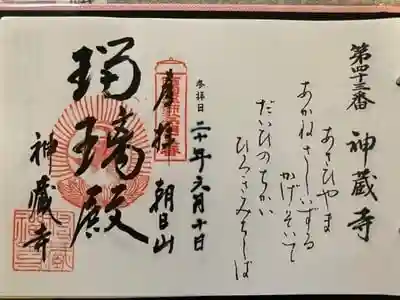 第四十三番 神蔵寺
あさひやま
あかねさしいずる
かげそいて
だいひのちかい
ひろさみちしば
参拝日 二十年六月十日
奉拝 朝日山
瑠璃殿
神蔵寺